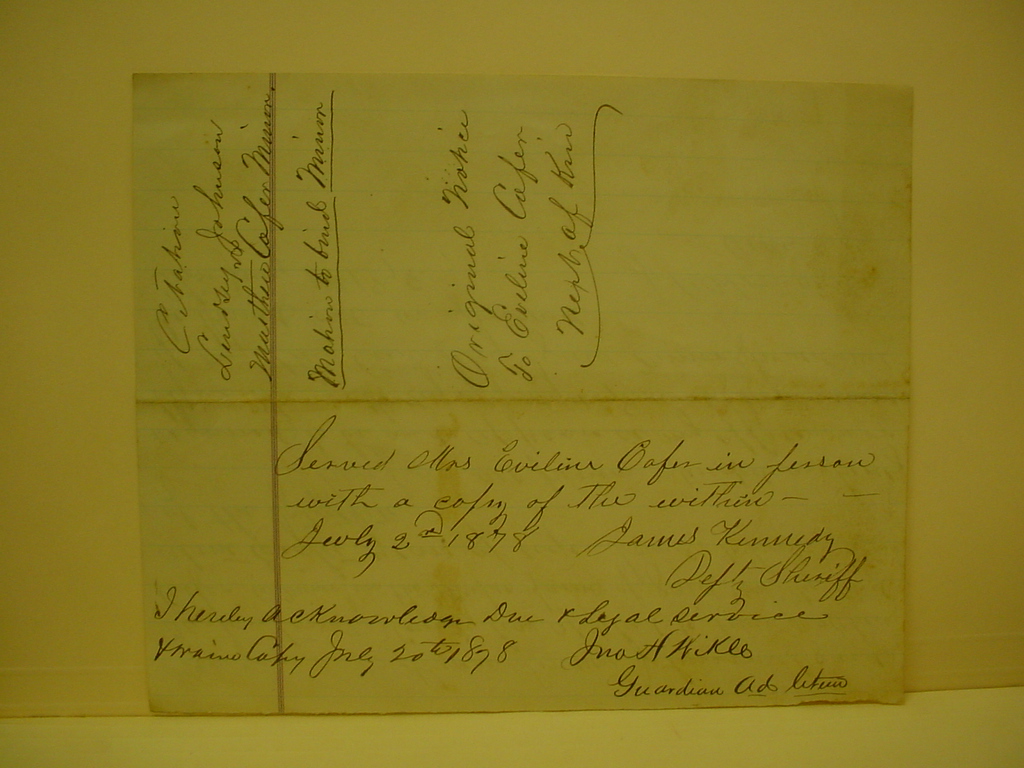 Citation
Lindsey Johnson
vs
Matthew Cofer Minor
Motion to bind Minor
Original Notice
To Eveline Cofer
Next of Kin
Served Mrs Eviline Cofer in person
with a copy of the within —
July 2nd 1878 James Kennedy
Depty Sheriff
I hereby acknowledge Due & Legal service
& waive Copy July 20th 1878 Jno A Wikle
Guardian Ad litem